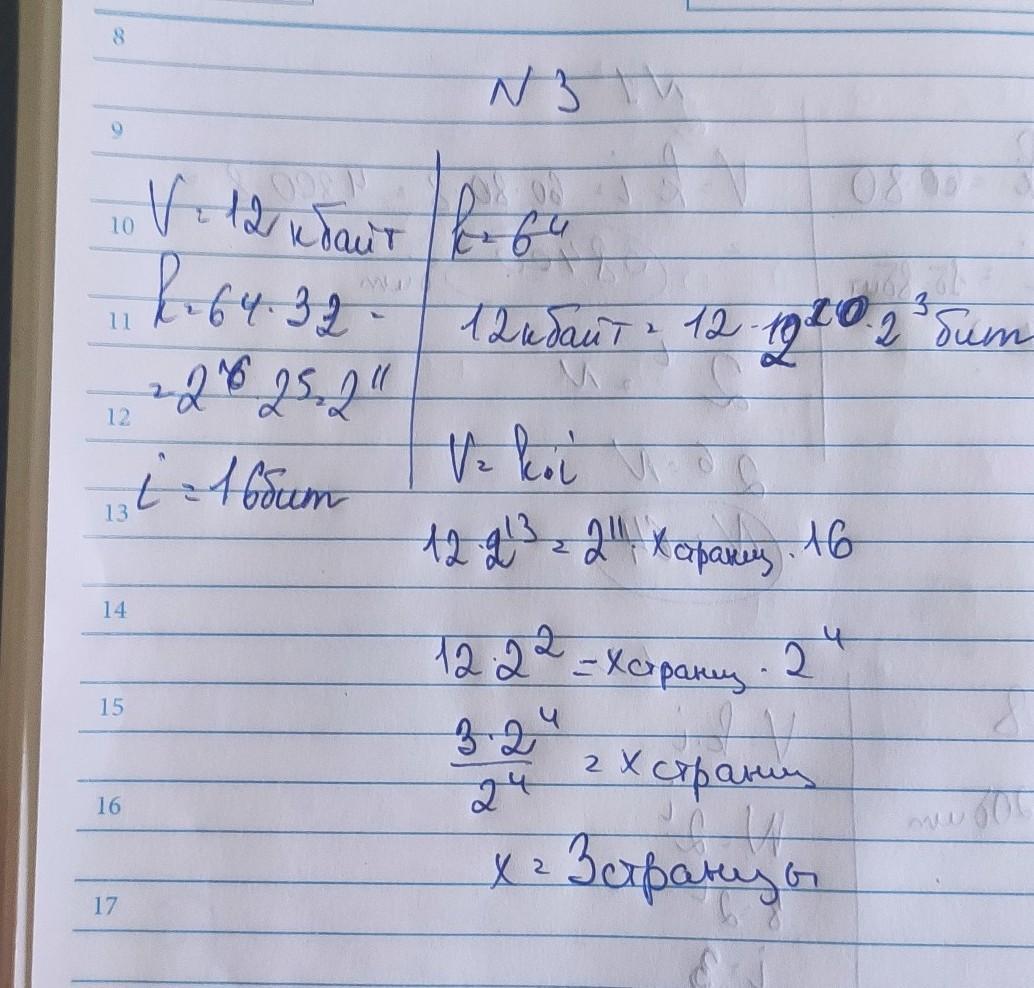 8
N 3
9
V = 12 кбайт
k = 64
10
k = 64 · 32 =
12 кбайт = 12 · 2^10 · 2^3 бит
11
= 2^6 2^5 = 2^11
12
V = k · i
i = 16 бит
13
12 · 2^13 = 2^11 · x страниц · 16
14
12 · 2^2 = x страниц · 2^4
15
3 · 2^4 / 2^4 = x страниц
16
x = 3 страницы
17